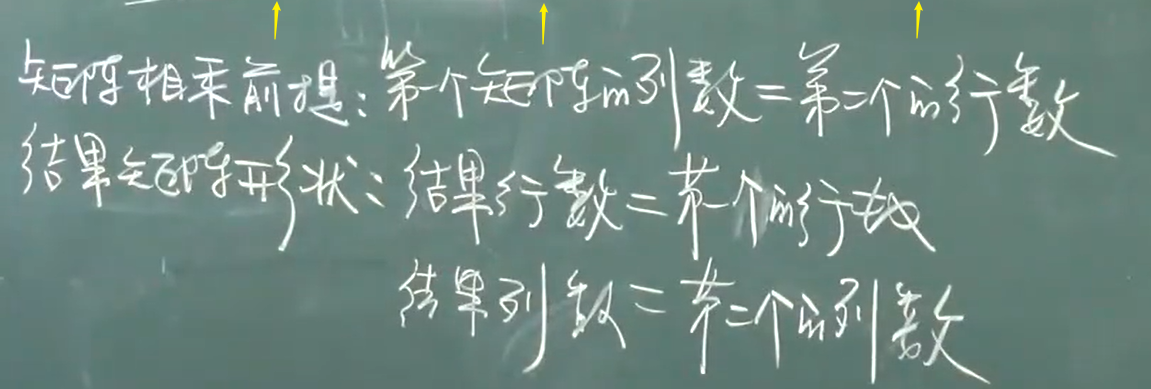 矩阵相乘前提:第一个矩阵的列数=第二个的行数
结果矩阵形状:结果行数=第一个的行数
结果列数=第二个的列数